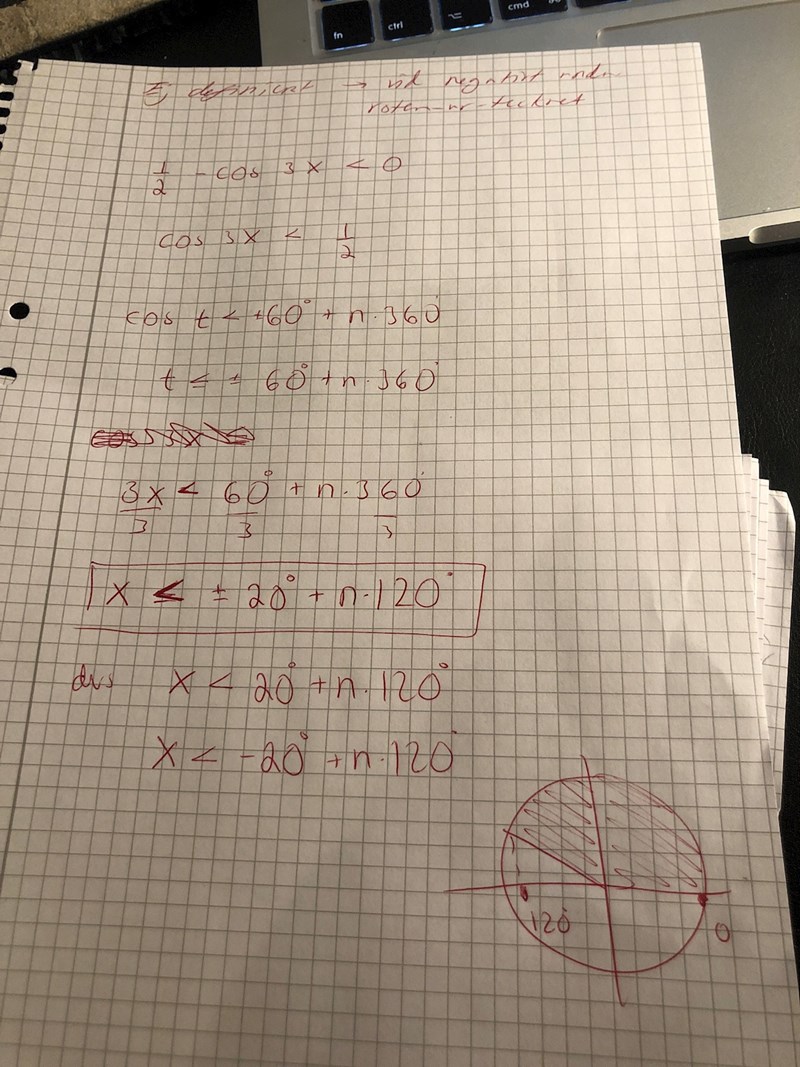 fn ctrl ⌥ cmd
Ej definierat → vid negativt under
roten-ur-tecknet
1/2 - cos 3x < 0
cos 3x < 1/2
cos t < ±60° + n·360°
t < ± 60° + n·360°
3x/3 < 60°/3 + n·360°/3
x < ± 20° + n·120°
dvs x < 20° + n·120°
x < -20° + n·120°
120°
0